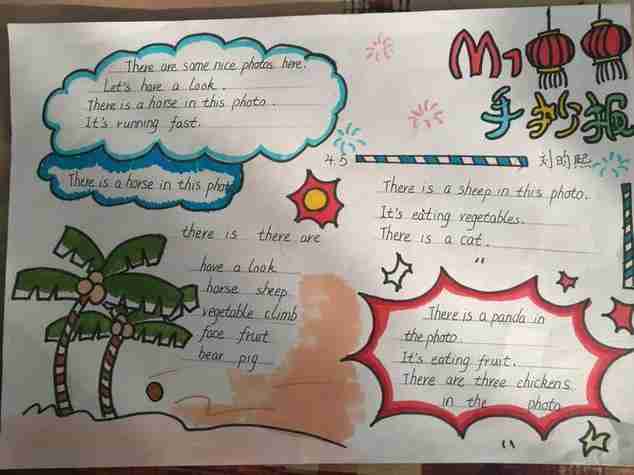 There are some nice photos here.
Let's have a look.
There is a horse in this photo.
It's running fast.
There is a horse in this phot
M1
手抄报
45
There is a sheep in this photo.
It's eating vegetables.
There is a cat.
there is there are
have a look
horse sheep
vegetable climb
face fruit
bear pig
There is a panda in
the photo.
It's eating fruit.
There are three chickens
in the photo